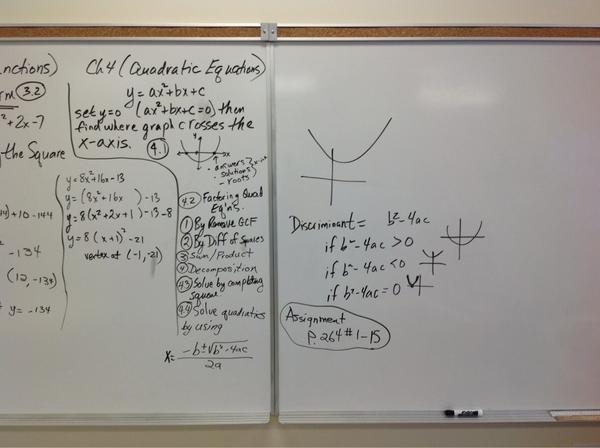 nctions)
3.2
²+2x-7
the Square
+10-144
-134
(12,-134)
y=-134
Ch4 (Quadratic Equations)
y=ax²+bx+c
set y=0 (ax²+bx+c=0) then
find where graph crosses the
x-axis. 4.1
y
x
- answers
- solutions
- roots
y=8x²+16x-13
y=(8x²+16x )-13
y=8(x²+2x+1)-13-8
y=8(x+1)²-21
vertex at (-1,-21)
4.2 Factoring Quad
Eq'ns.
1 By Remove GCF
2 By Diff of Squares
3 Sum/Product
4 Decomposition
4.3 Solve by completing
square
4.4 Solve quadratics
by using
x= -b±√b²-4ac
2a
Discriminant = b²-4ac
if b²-4ac >0
if b²-4ac <0
if b²-4ac =0
Assignment
P. 264 #1-15